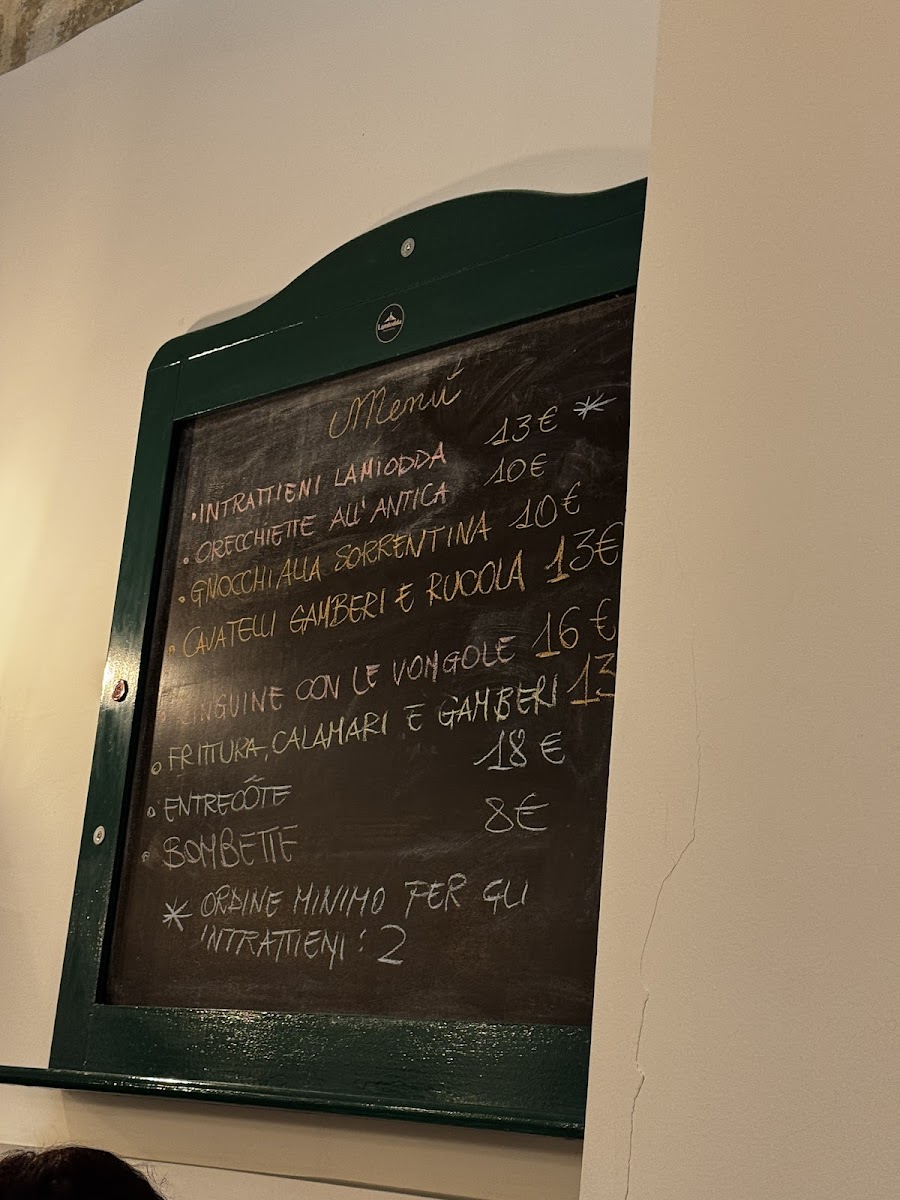 Lamiodda
Menù
• INTRATTIENI LAMIODDA 13€ *
• ORECCHIETTE ALL'ANTICA 10€
• GNOCCHI ALLA SORRENTINA 10€
• CAVATELLI GAMBERI E RUCOLA 13€
• LINGUINE CON LE VONGOLE 16€
• FRITTURA, CALAMARI E GAMBERI 13
• ENTRECÔTE 18€
• BOMBETTE 8€
* ORDINE MINIMO PER GLI
INTRATTIENI: 2